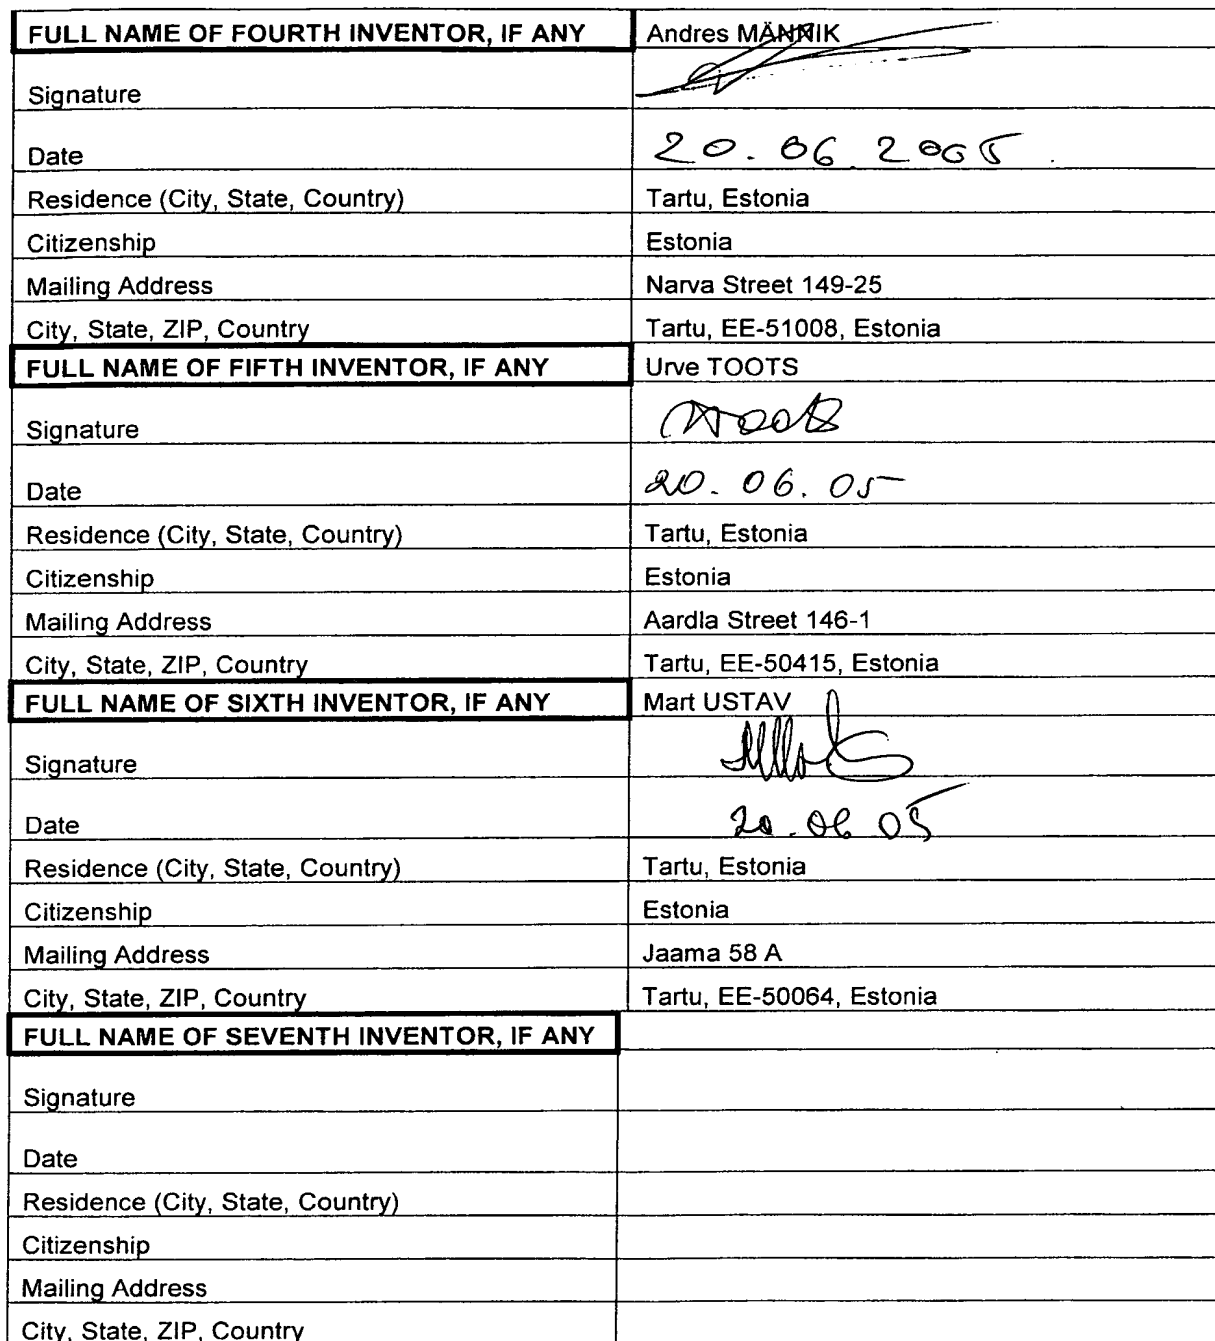 FULL NAME OF FOURTH INVENTOR, IF ANY Andres MÄNNIK
Signature
Date 20. 06 2005
Residence (City, State, Country) Tartu, Estonia
Citizenship Estonia
Mailing Address Narva Street 149-25
City, State, ZIP, Country Tartu, EE-51008, Estonia
FULL NAME OF FIFTH INVENTOR, IF ANY Urve TOOTS
Signature
Date 20. 06. 05
Residence (City, State, Country) Tartu, Estonia
Citizenship Estonia
Mailing Address Aardla Street 146-1
City, State, ZIP, Country Tartu, EE-50415, Estonia
FULL NAME OF SIXTH INVENTOR, IF ANY Mart USTAV
Signature
Date 20.06 05
Residence (City, State, Country) Tartu, Estonia
Citizenship Estonia
Mailing Address Jaama 58 A
City, State, ZIP, Country Tartu, EE-50064, Estonia
FULL NAME OF SEVENTH INVENTOR, IF ANY
Signature
Date
Residence (City, State, Country)
Citizenship
Mailing Address
City, State, ZIP, Country